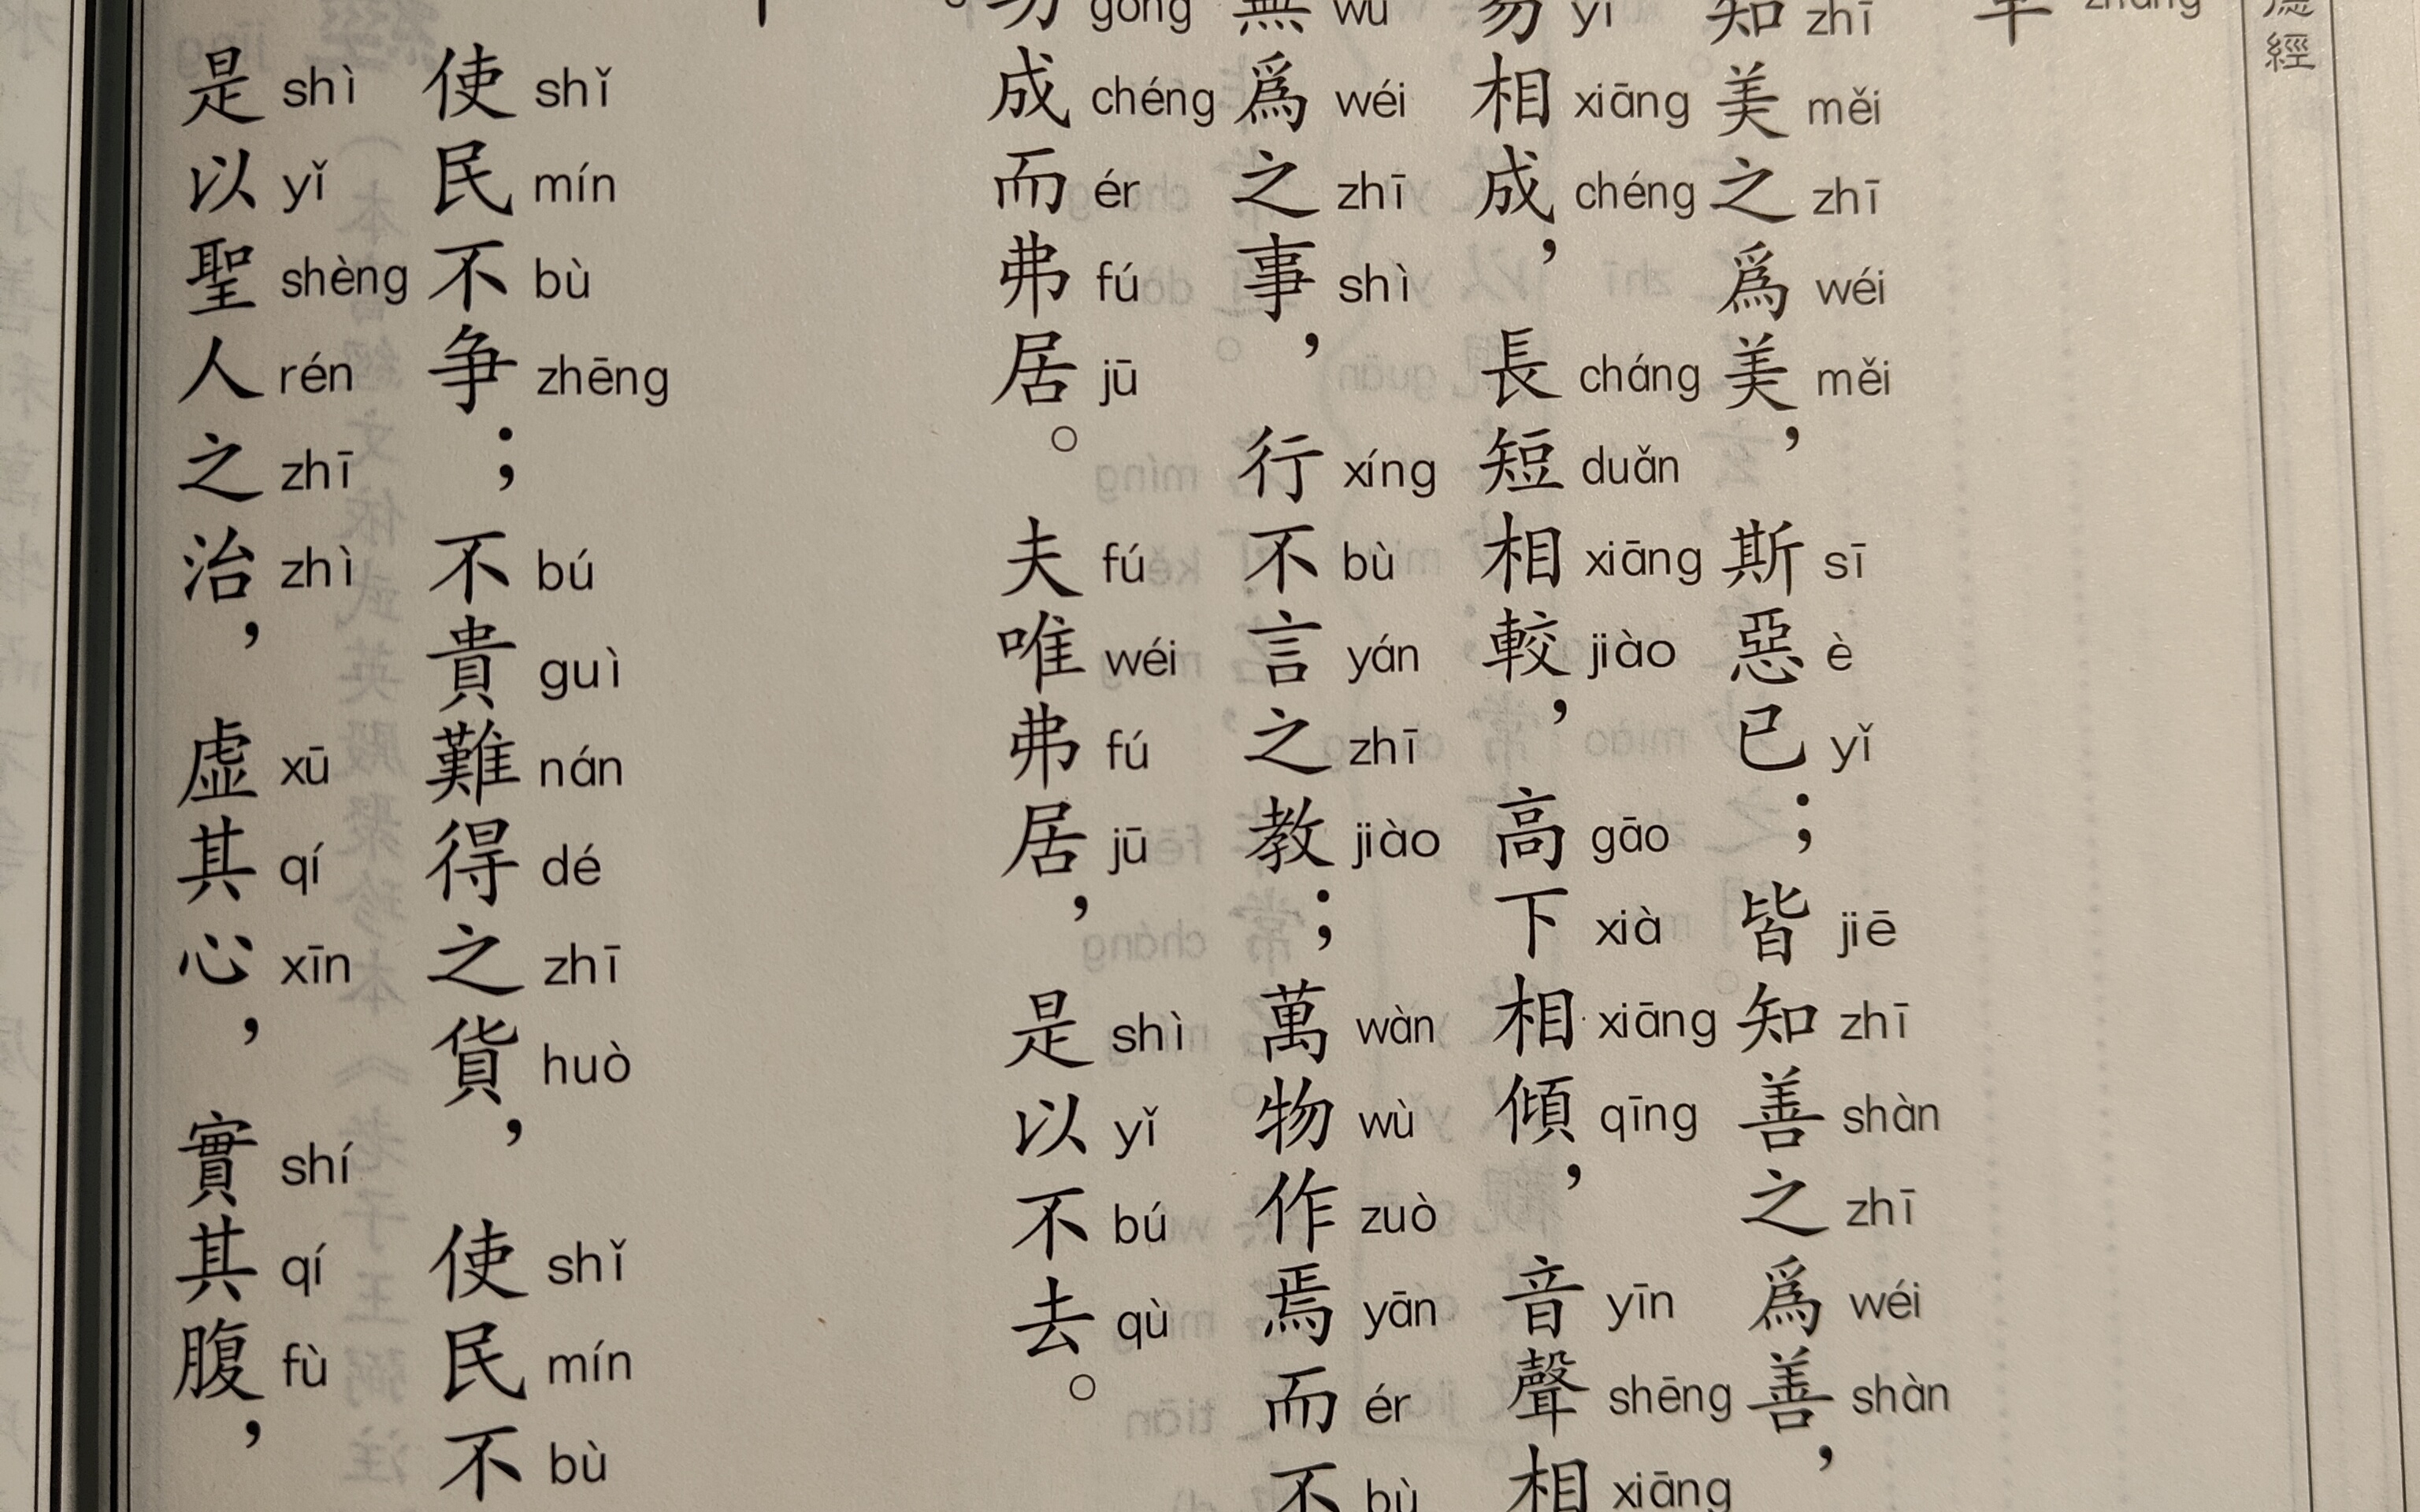 經
知zhī美měi之zhī爲wéi美měi，斯sī惡è已yǐ；皆jiē知zhī善shàn之zhī爲wéi善shàn，
易yì相xiāng成chéng，長cháng短duǎn相xiāng較jiào，高gāo下xià相xiāng傾qīng，音yīn聲shēng相xiāng
無wú爲wéi之zhī事shì，行xíng不bù言yán之zhī教jiào；萬wàn物wù作zuò焉yān而ér不bù
功gōng成chéng而ér弗fú居jū。夫fú唯wéi弗fú居jū，是shì以yǐ不bú去qù。
使shǐ民mín不bù争zhēng；不bú貴guì難nán得dé之zhī貨huò，使shǐ民mín不bù
是shì以yǐ聖shèng人rén之zhī治zhì，虚xū其qí心xīn，實shí其qí腹fù，